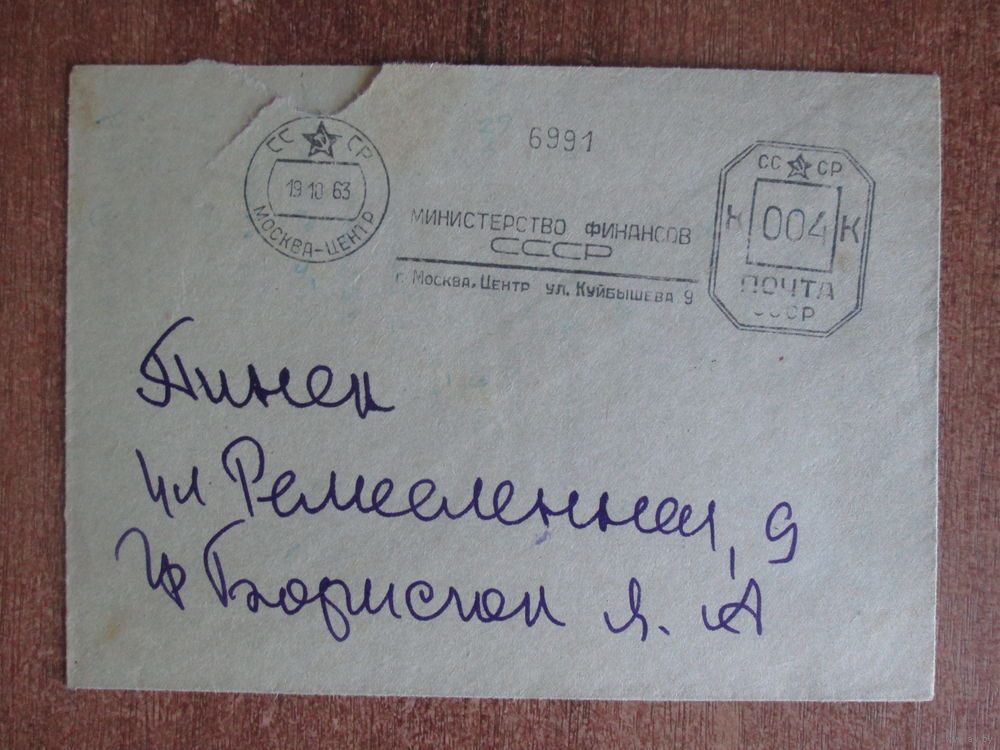 СС СР
19 10 63
МОСКВА-ЦЕНТР
6991
МИНИСТЕРСТВО ФИНАНСОВ
СССР
г. Москва, Центр ул. Куйбышева 9
СС СР
К 004 К
ПОЧТА
СССР
Пинск
ул Ремесленная, 9
Гр
Я. А